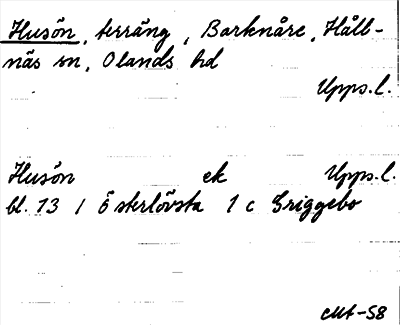 Husön, terräng, Barknåre, Håll-
näs sn, Olands hd
Upps.l.
Husön ek Upps.l.
bl. 13 I Österlövsta 1 c Griggebo
Mt-58